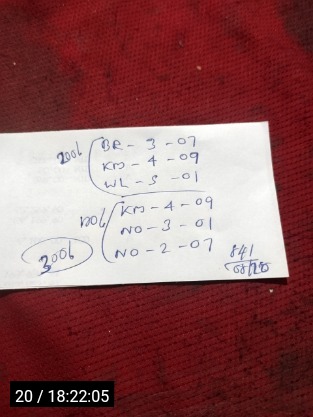 200/ BR - 3 - 07
KM - 4 - 09
WL - 5 - 01
100/ KM - 4 - 09
NO - 3 - 01
NO - 2 - 07
300/
841
20 / 18:22:05